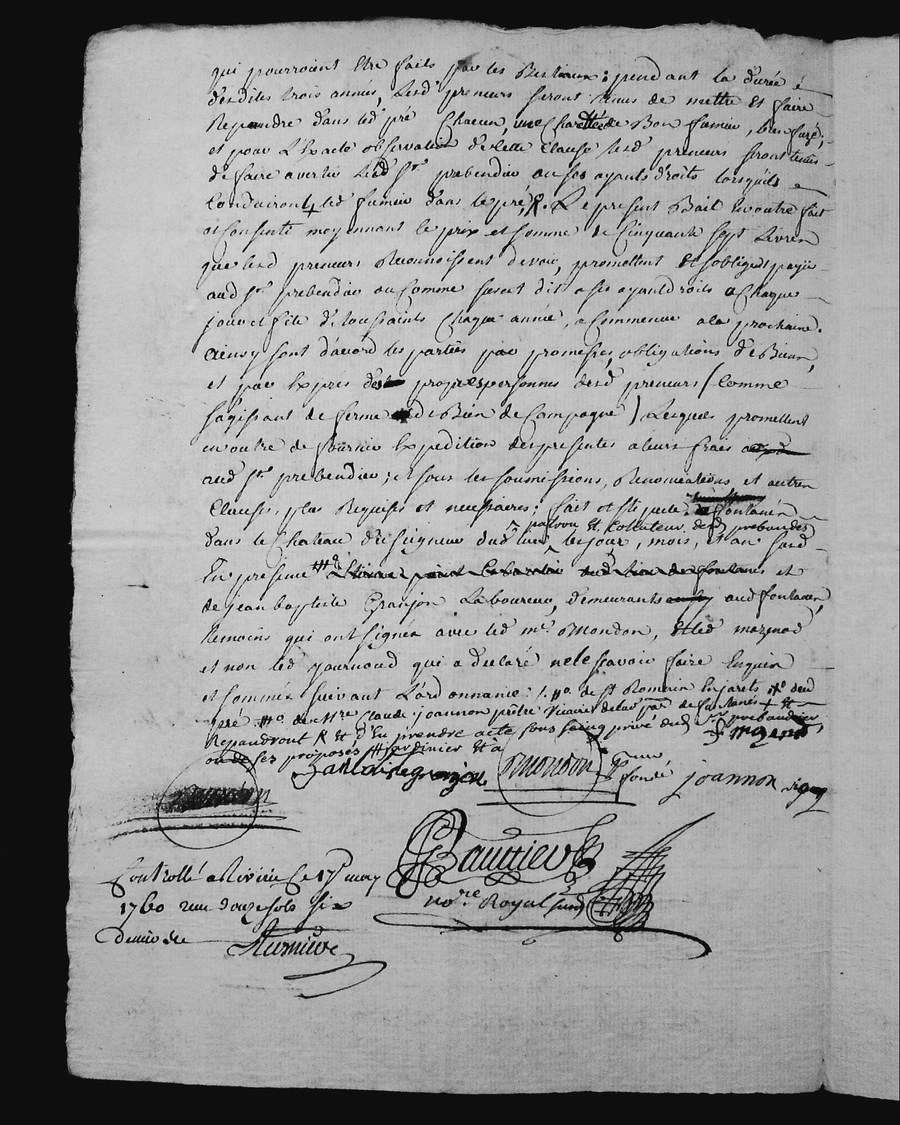 qui pourroient Etre faits par les Bestiaux; pendant la durée
desdites trois années, Lesd preneurs seront tenus de mettre et faire
Repandre dans led pré Chacun, une Charettée de Bon fumier, bien
et pour L'Exacte observation de cette Clause lesd preneurs seront tenus
de faire avertir Led Sr. prebendier ou ses ayants droits lorsqu'ils
Conduiront led fumier dans le pré. Le present Bail En outre fait
et Consenti moyennant le prix et somme de Cinquante sept Livres
que lesd preneurs Reconnoissent devoir, promettent et s'obligent payer
aud Sr. prebendier ou Comme susest dit a ses ayant droits a Chaque
jour et fête de toussaints Chaque année, a Commencer a la prochaine.
Ainsy sont d'acord les parties par promesses, obligations de Biens,
et par Exprés des propres personnes desd preneurs (Comme
s'agissant de ferme de Bien de Campagne) Lesquels promettent
en outre de fournir Expedition des presentes a leurs frais
aud Sr. prebendier; et sous les soumissions, Renonciations et autres
Clauses, plus Requises et necessaires; fait et stipulé a fontanés
patron et Collateur desd prebendes
dans le Chateau du seigneur dud lieu, les jour, mois, et an susd
En presence et
de jean baptiste Granjon Laboureur, demeurants aud fontanés,
temoins qui ont signés avec led me. Mondon, et led marnad
et non led journoud qui a declaré ne le scavoir faire Enquis
et sommés suivant L'ordonnance: de St Romain En jarets
de Mre Claude joannon prêtre Vicaire de la par de fontanés + et
Repandront et d'En prendre acte sous seing privé dud Sr prebendier
ou de ses proposés
granjon Mondon
fondé joannon
Gaultier
nore Royal
Controllé a Rivirie Ce 17e may
1760 reçu douze sols six
deniers